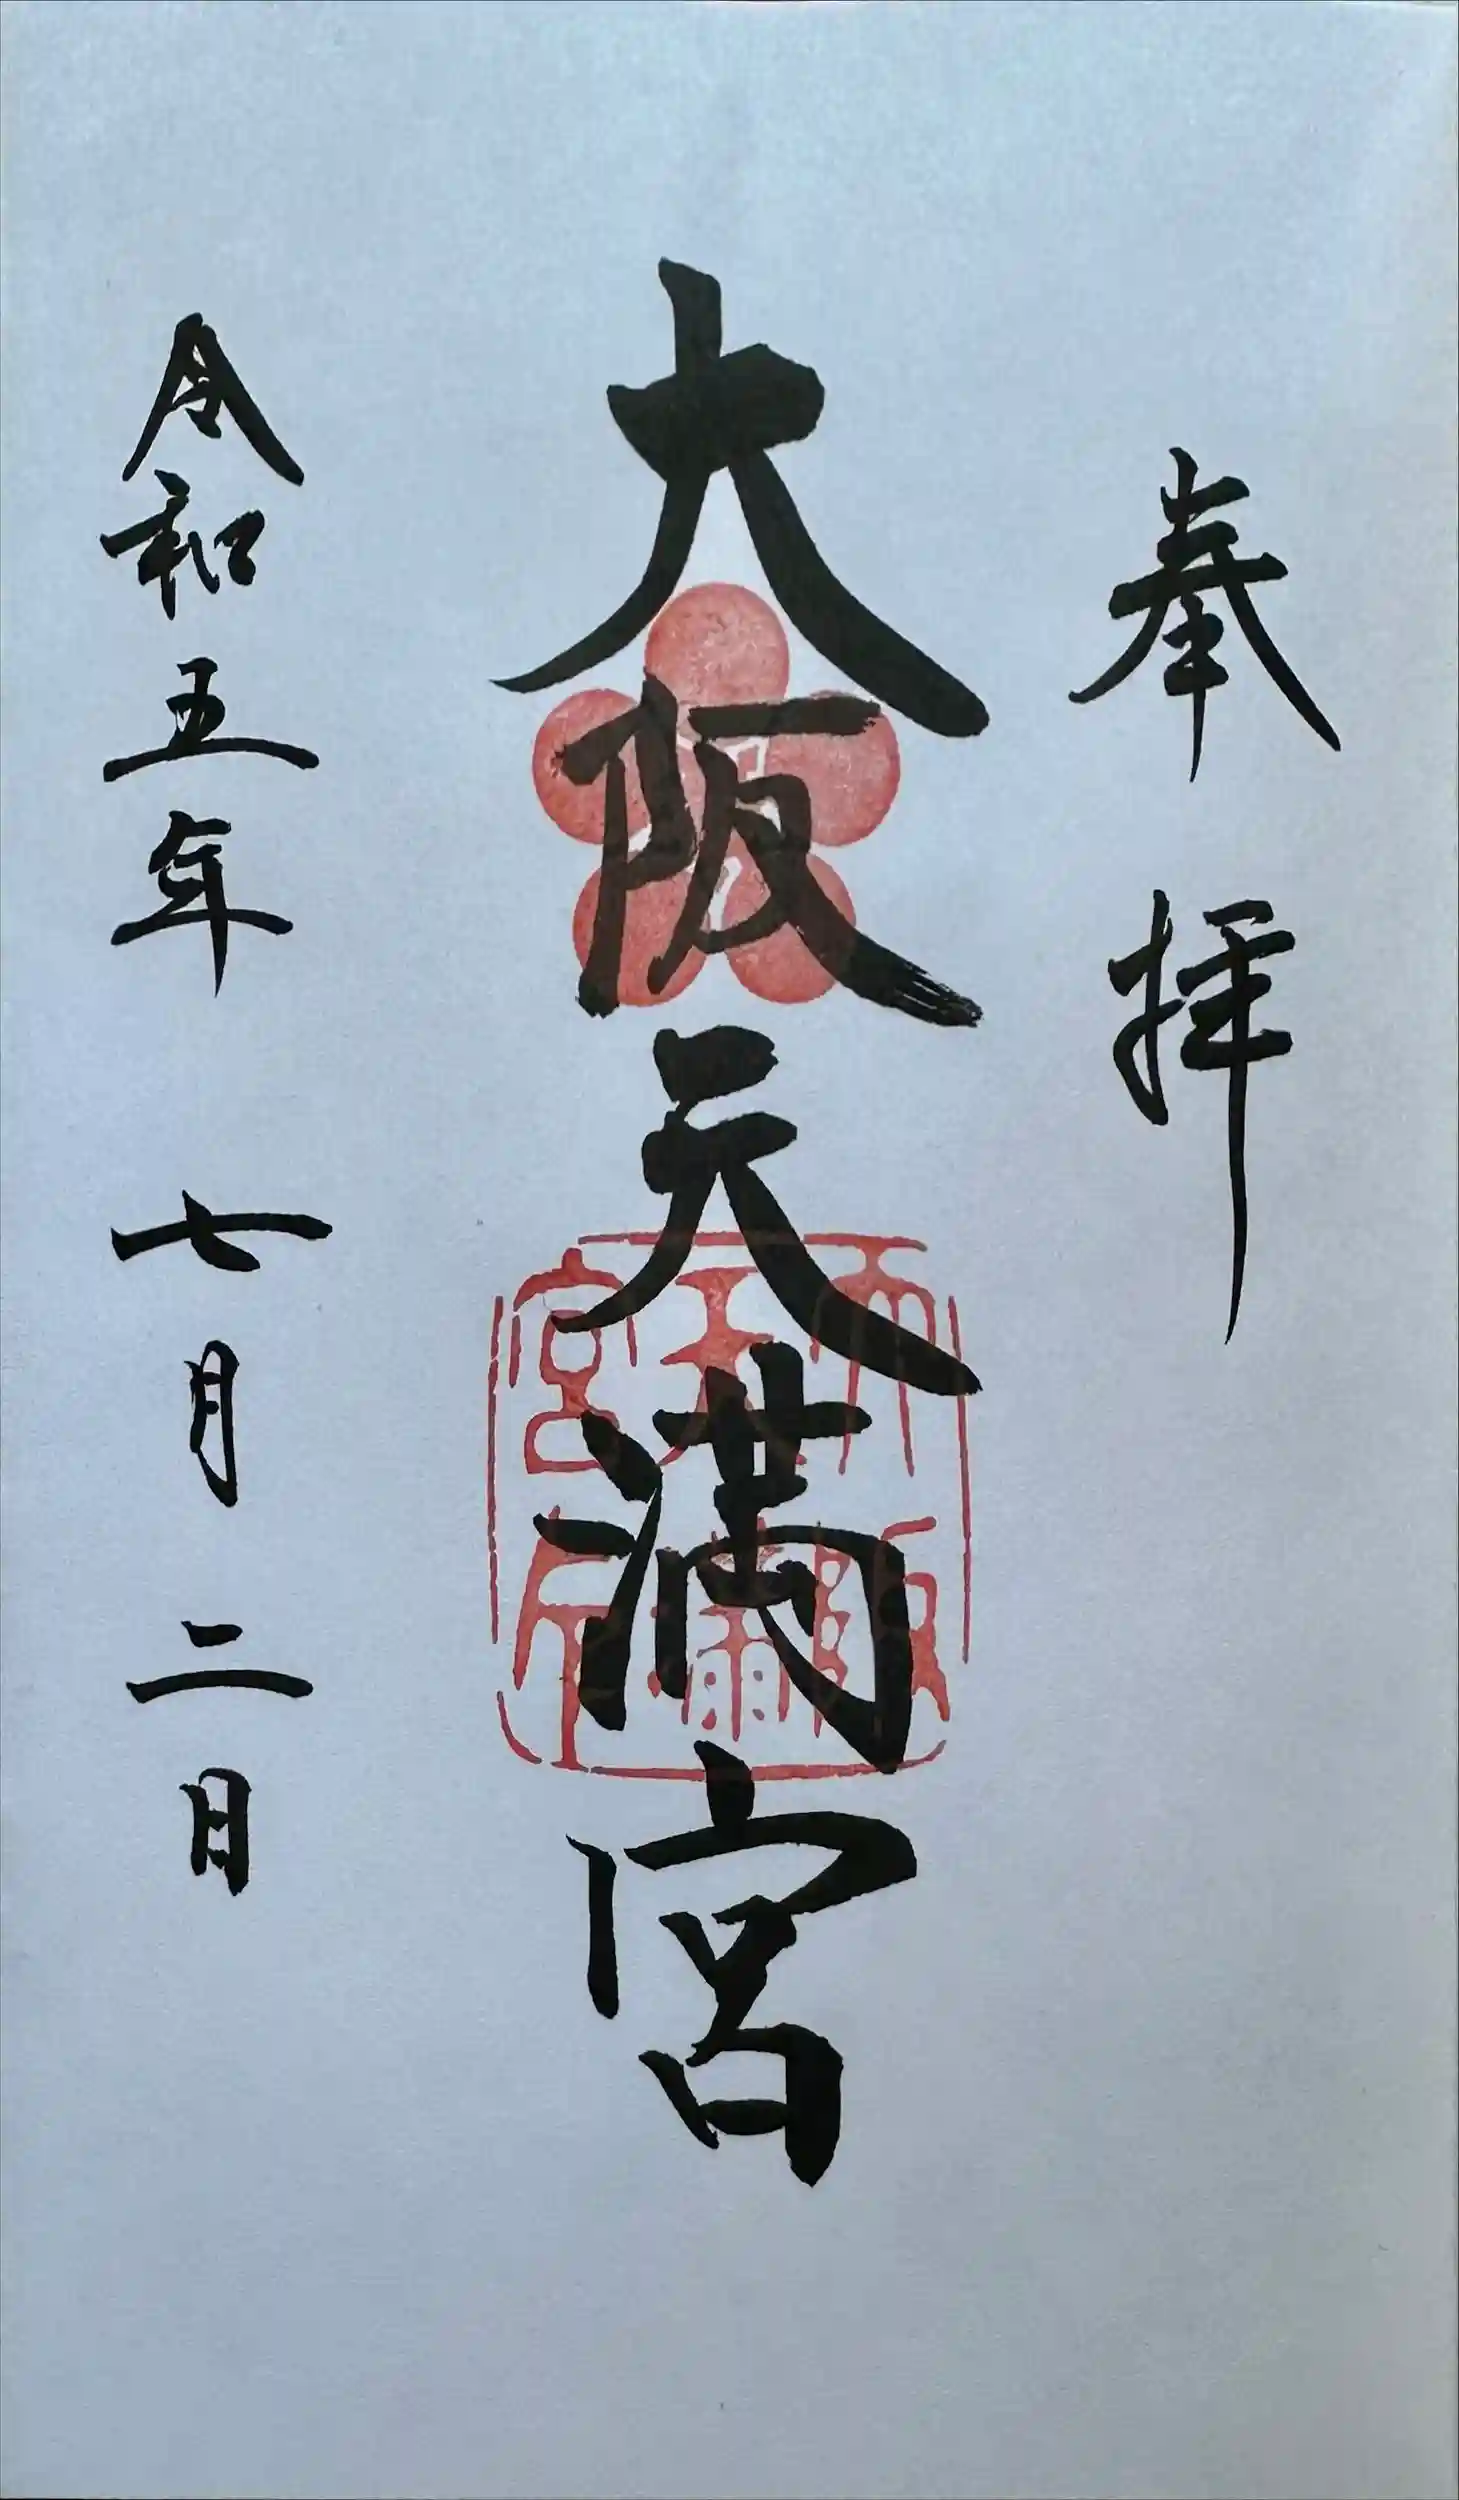 奉拝
大阪天満宮
令和五年 七月二日
大阪天満宮